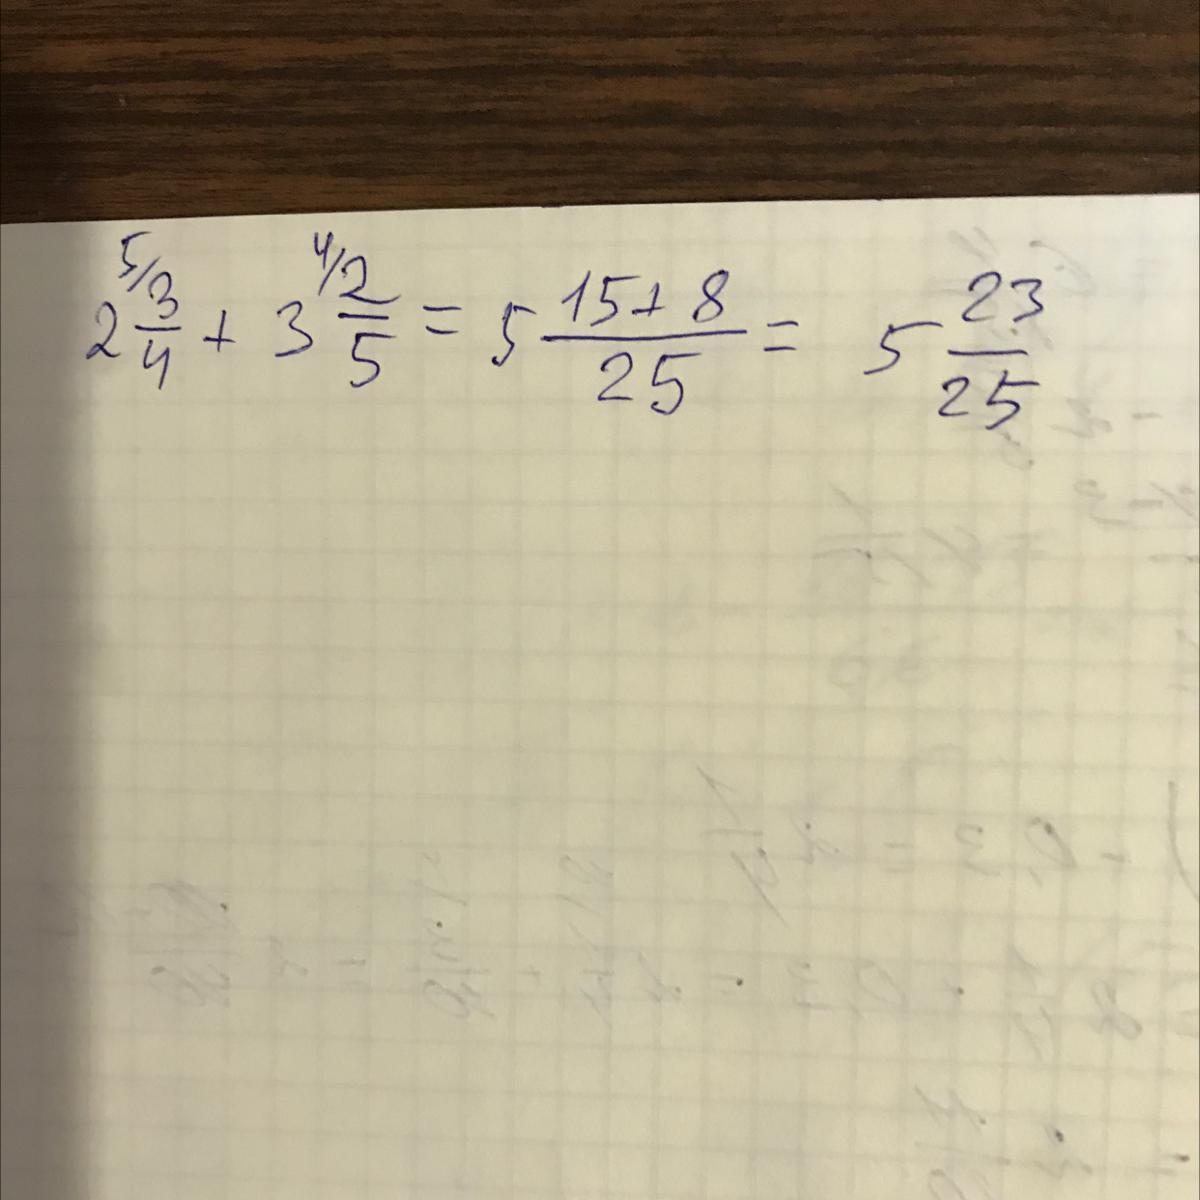 2 ⁵⁄ 3/4 + 3 ⁴⁄ 2/5 = 5 (15+8)/25 = 5 23/25